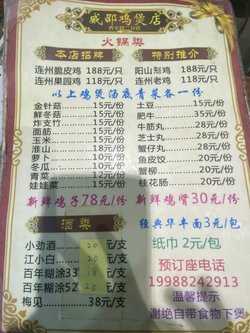 威邵鸡煲店
火锅类
本店招牌 特别推介
连州脆皮鸡 188元/只 阳山彤鸡 188元/只
连州果园鸡 118元/只 连州老鸡 118元/只
以上鸡煲汤底青菜各一份
金针菇 15元/份 土豆 15元/份
鲜冬菇 15元/份 肥牛 35元/份
炸支竹 15元/份 牛筋丸 23元/份
面筋 15元/份 牛肉丸 23元/份
玉米 15元/份 芝士丸 23元/份
淮山 18元/份 蟹仔包 23元/份
萝卜 12元/份 鱼皮饺 20元/份
冬瓜 12元/份 蟹柳 20元/份
青菜 12元/份 桂花肠 20元/份
娃娃菜 15元/份
新鲜鸡子78元/份 新鲜鸡胃30元/份
酒类 经典华丰面3元/包
小劲酒 20元/支 纸巾 2元/包
江小白 20元/支 预订座电话
百年糊涂33 18元/支 19988242913
百年糊涂52 20元/支 温馨提示
梅见 38元/支 谢绝自带食物下煲